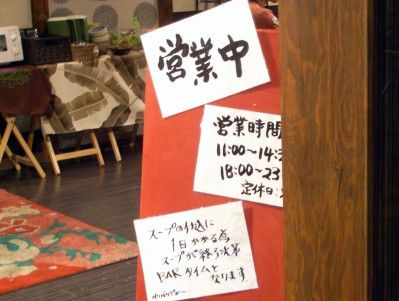 営業中
営業時間
11:00〜14:3
18:00〜23
定休日:
スープの仕込に
1日かかる為
スープが終了次第
BARタイムと
なります